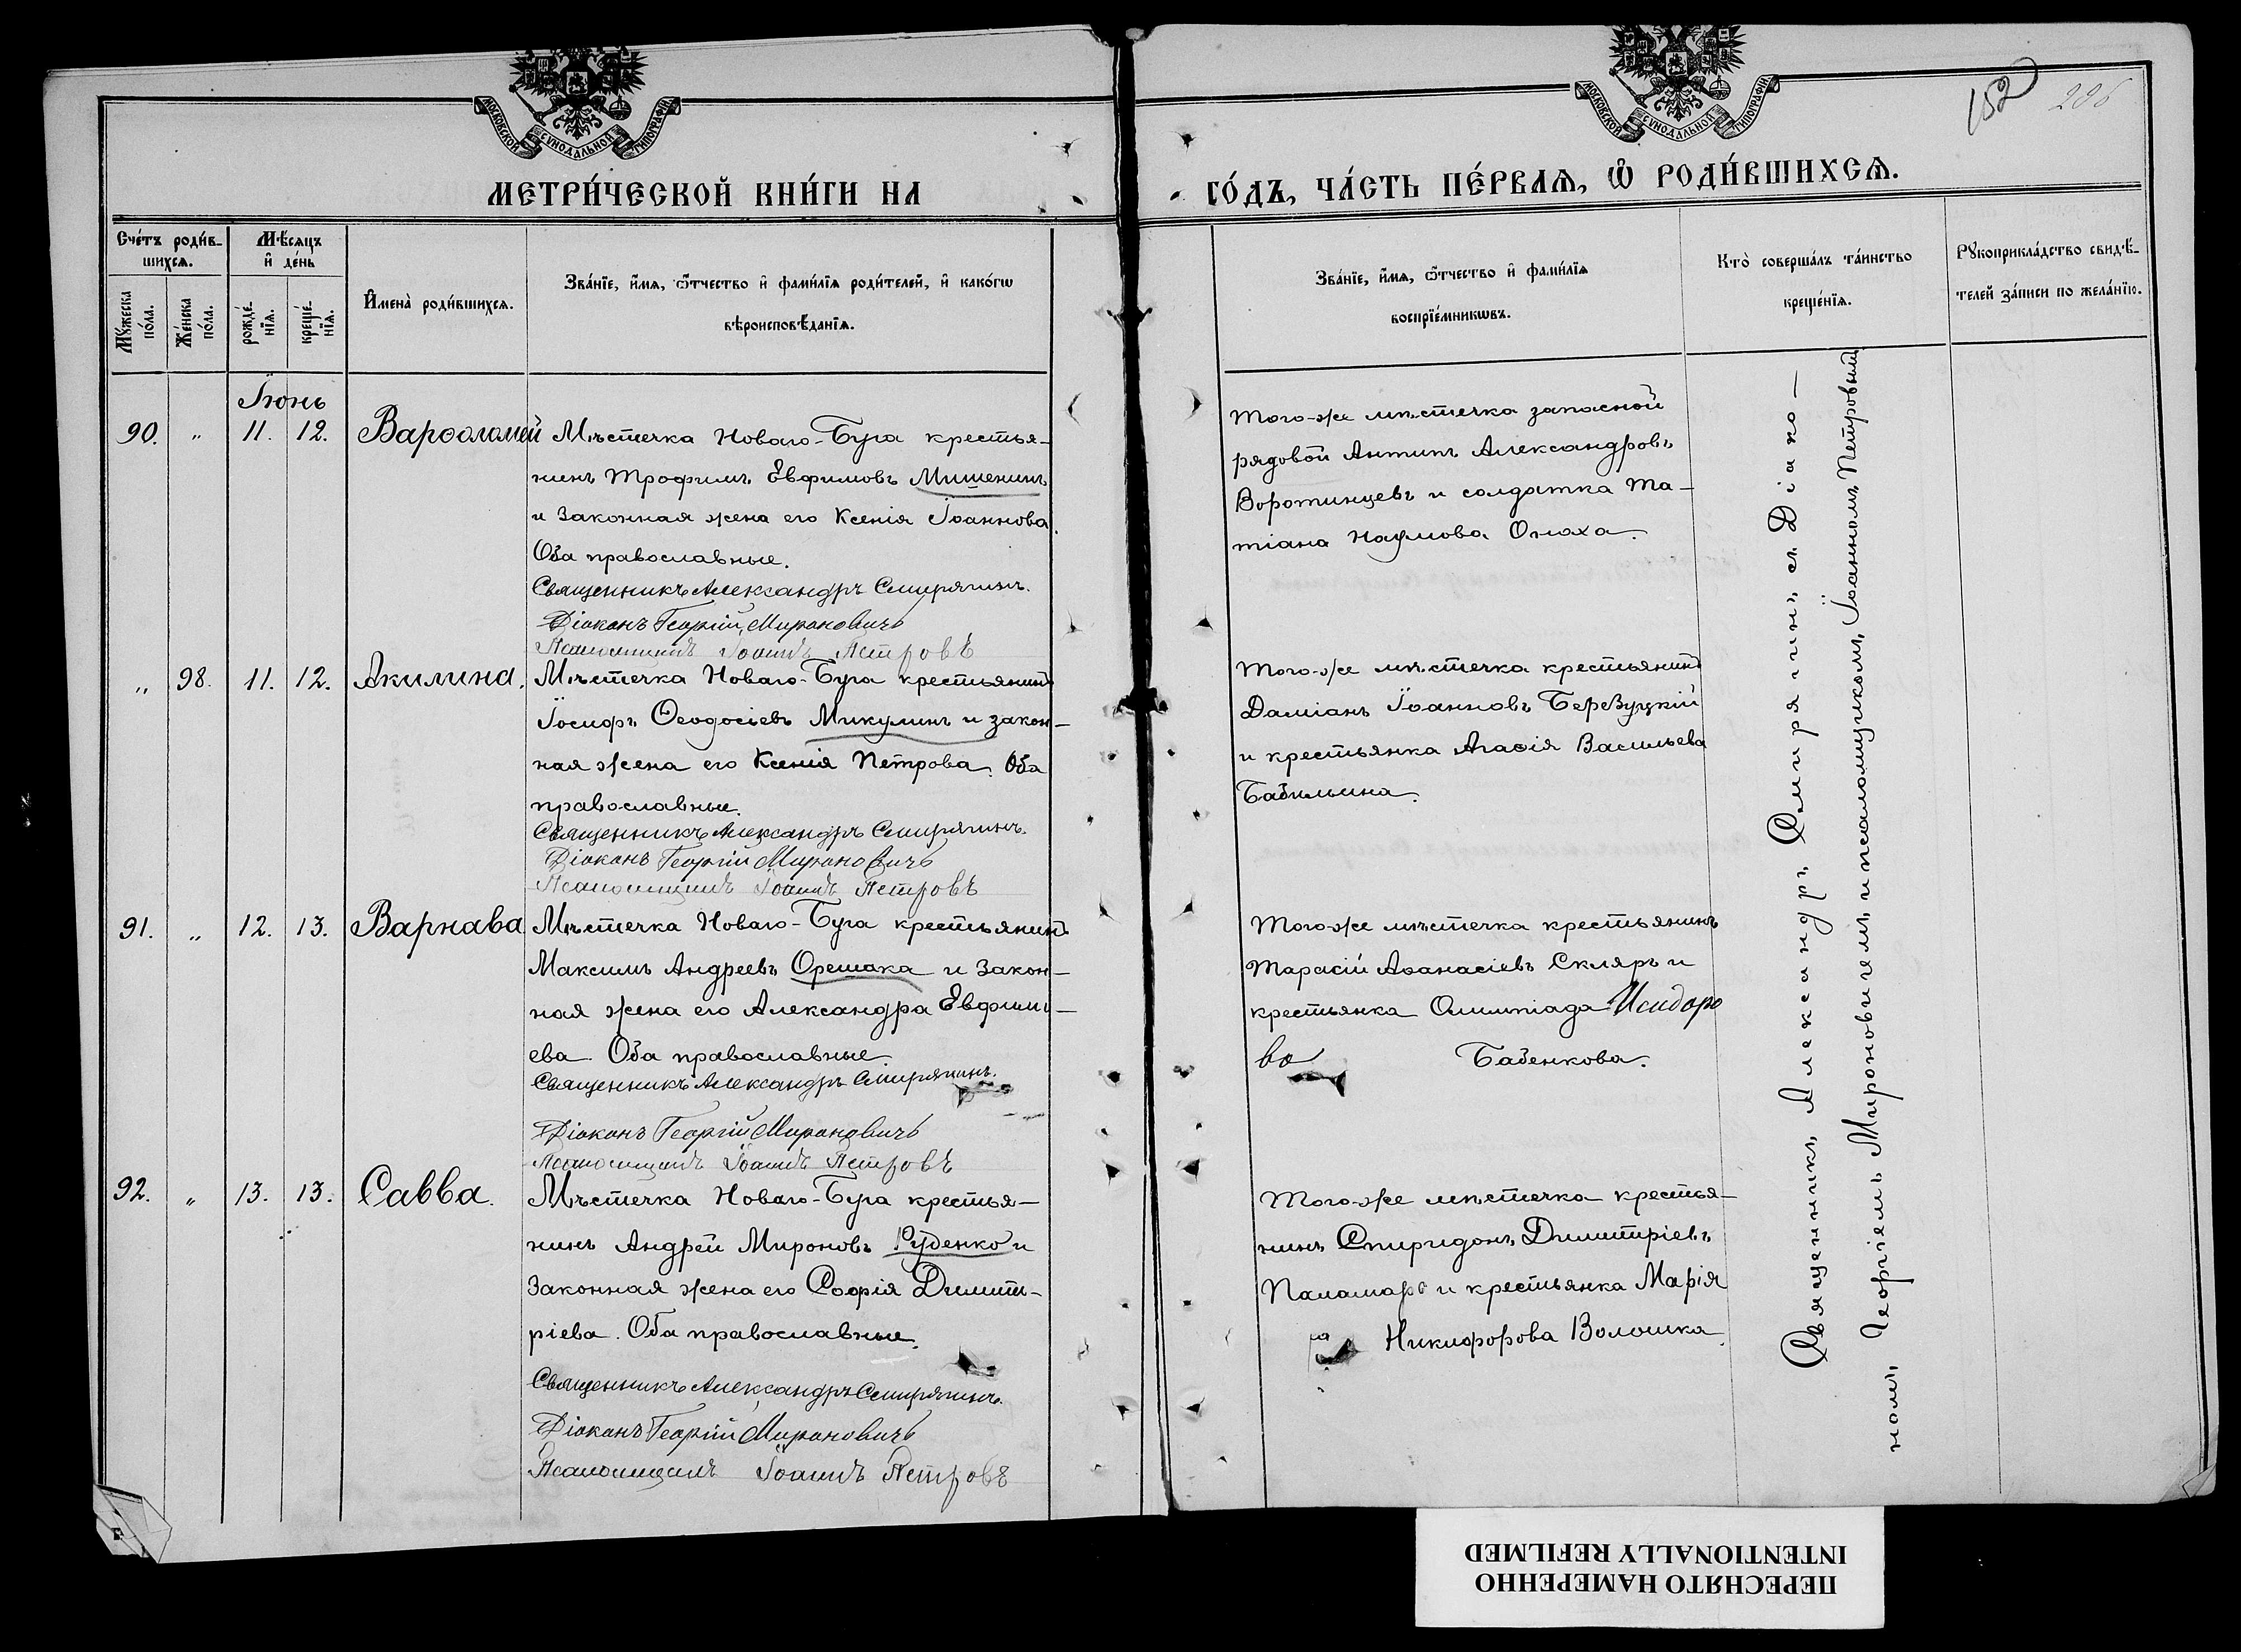 МОСКОВСКОЙ СУНОДАЛЬНОЙ ТИПОГРАФІИ
МОСКОВСКОЙ СУНОДАЛЬНОЙ ТИПОГРАФІИ
152
206
МЕТРИ́ЧЕСКОЙ КНИ́ГИ НА
ГО́ДЪ, ЧА́СТЬ ПЕ́РВАѦ, Ѽ РОДИ́ВШИХСѦ.
Сче́тъ роди́в-
шихсѧ.
Мѣ́сѧцъ
и҆ де́нь
Мꙋ́жеска
по́ла.
Же́нска
по́ла.
рожде́-
нїѧ.
креще́-
нїѧ.
И҆мена̀ роди́вшихсѧ.
Зва́нїе, и҆́мѧ, ѻ҆́тчество и҆ фами́лїѧ роди́телей, и҆ како́гѡ
вѣроисповѣ́данїѧ.
Зва́нїе, и҆́мѧ, ѻ҆́тчество и҆ фами́лїѧ
воспрїе́мникѡвъ.
Кто̀ соверша́лъ та́инство
креще́нїѧ.
Рꙋкоприкла́дство свидѣ́-
телей за́писи по жела́нїю.
Іюнь
90. " 11. 12. Варѳоломей Мѣстечка Новаго-Буга крестья-
нинъ Трофимъ Евфимовъ Мишенинъ
и законная жена его Ксенія Іоаннова.
Оба православные.
Священникъ Александръ Смирягинъ.
Діаконъ Георгій Мироновичъ
Псаломщикъ Іоаннъ Петровъ
Того-же мѣстечка запасной
рядовой Антипъ Александровъ
Воротинцевъ и солдатка Та-
тіана Наумова Онаха.
" 98. 11. 12. Акилина. Мѣстечка Новаго-Буга крестьянинъ
Іосифъ Ѳеодосіевъ Микулинъ и закон-
ная жена его Ксенія Петрова. Оба
православные.
Священникъ Александръ Смирягинъ.
Діаконъ Георгій Мироновичъ
Псаломщикъ Іоаннъ Петровъ
Того-же мѣстечка крестьянинъ
Даміанъ Іоанновъ Березуцкій
и крестьянка Агаѳія Васильева
Бабильина.
91. " 12. 13. Варнава Мѣстечка Новаго-Буга крестьянинъ
Максимъ Андреевъ Орешака и закон-
ная жена его Александра Евфимі-
ева. Оба православные.
Священникъ Александръ Смирягинъ.
Діаконъ Георгій Мироновичъ
Псаломщикъ Іоаннъ Петровъ
Того-же мѣстечка крестьянинъ
Тарасій Аѳанасіевъ Скляръ и
крестьянка Олимпіада Исидоро
ва Бабенкова.
92. " 13. 13. Савва. Мѣстечка Новаго-Буга крестья-
нинъ Андрей Мироновъ Руденко и
законная жена его Софія Димит-
ріева. Оба православные.
Священникъ Александръ Смирягинъ.
Діаконъ Георгій Мироновичъ
Псаломщикъ Іоаннъ Петровъ
Того-же мѣстечка крестья-
нинъ Спиридонъ Димитріевъ
Паламарь и крестьянка Марія
Никифорова Волошка.
Священникъ Александръ Смирягинъ съ Діако-
номъ Георгіемъ Мироновичемъ и псаломщикомъ Іоанномъ Петровымъ
ПЕРЕСНЯТО НАМЕРЕННО
INTENTIONALLY REFILMED